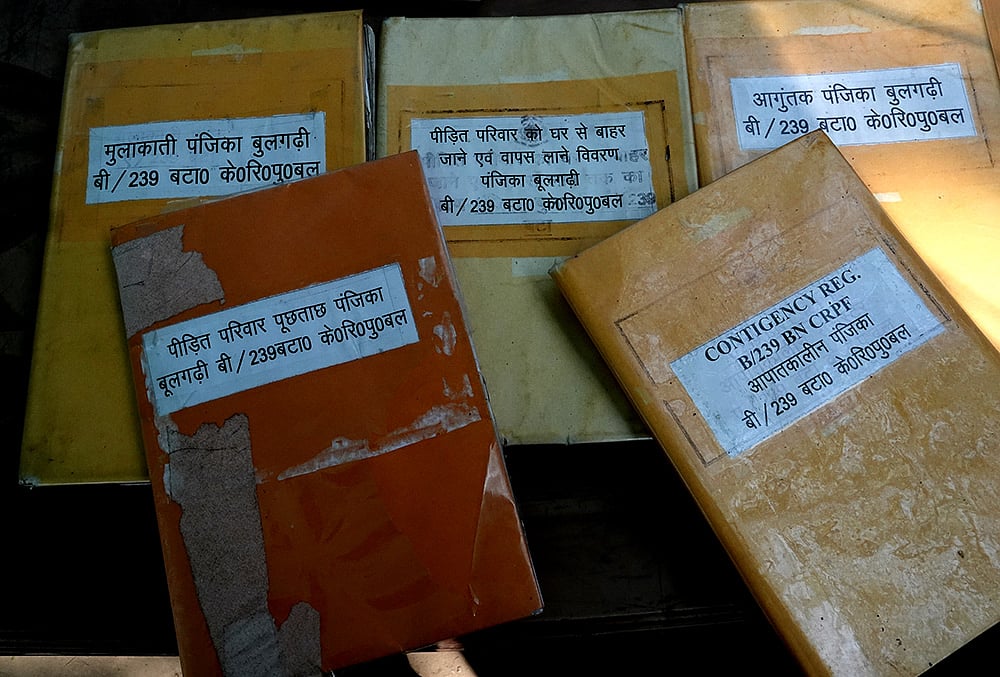 मुलाकाती पंजिका बुलगढ़ी
बी/239 बटा0 के0रि0पु0बल
पीड़ित परिवार को घर से बाहर
जाने एवं वापस लाने विवरण
पंजिका बूलगढ़ी
बी/239 बटा0 के0रि0पु0बल
आगुंतक पंजिका बुलगढ़ी
बी/239 बटा0 के0रि0पु0बल
पीड़ित परिवार पूछताछ पंजिका
बूलगढ़ी बी/239बटा0 के0रि0पु0बल
CONTIGENCY REG.
B/239 BN CRPF
आपातकालीन पंजिका
बी/239 बटा0 के0रि0पु0बल